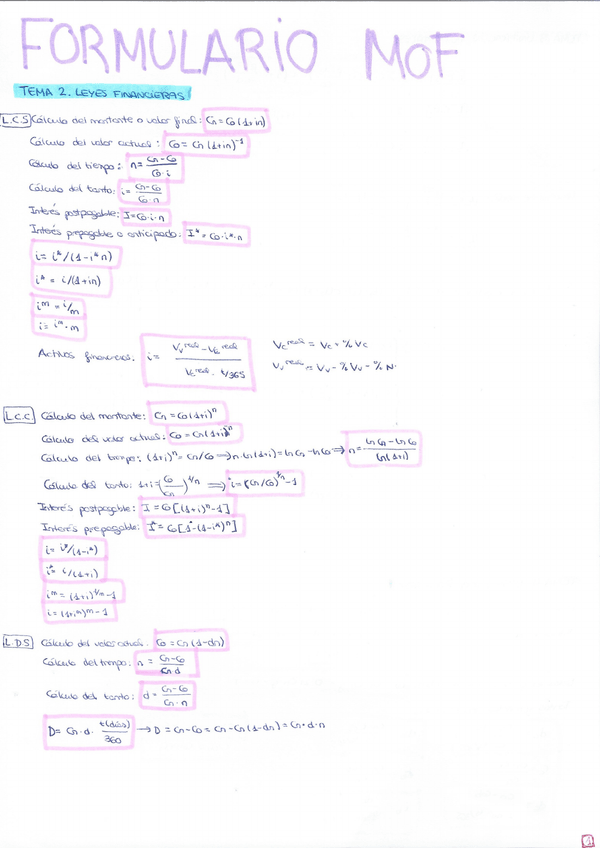 FORMULARIO MOF
TEMA 2. LEYES FINANCIERAS
L.C.S Cálculo del montante o valor final: Cn = Co (1+in)
Cálculo del valor actual: Co = Cn (1+in)^-1
Cálculo del tiempo: n = (Cn-Co)/(Co·i)
Cálculo del tanto: i = (Cn-Co)/(Co·n)
Interés postpagable: I = Co·i·n
Interés prepagable o anticipado: I* = Co·i*·n
i = i*/(1-i*n)
i* = i/(1+in)
i^m = i/m
i = i^m·m
Activos financieros: i = (Vv^real - Vc^real)/(Vc^real · t/365)
Vc^real = Vc + % Vc
Vv^real = Vv - % Vv - % N
L.C.C Cálculo del montante: Cn = Co(1+i)^n
Cálculo del valor actual: Co = Cn(1+i)^n
Cálculo del tiempo: (1+i)^n = Cn/Co ⟹ n·Ln(1+i) = Ln Cn - Ln Co ⟹ n = (Ln Cn - Ln Co)/(Ln(1+i))
Cálculo del tanto: 1+i = (Co/Cn)^1/n ⟹ i = (Cn/Co)^1/n - 1
Interés postpagable: I = Co[(1+i)^n - 1]
Interés prepagable: I* = Co[1-(1-i*)^n]
i = i*/(1-i*)
i* = i/(1+i)
i^m = (1+i)^1/m - 1
i = (1+i^m)^m - 1
L.D.S Cálculo del valor actual: Co = Cn (1-dn)
Cálculo del tiempo: n = (Cn-Co)/(Cn·d)
Cálculo del tanto: d = (Cn-Co)/(Cn·n)
D = Cn·d· t(días)/360 → D = Cn-Co = Cn-Cn(1-dn) = Cn·d·n
1